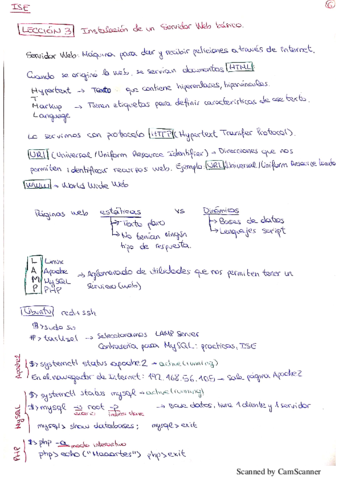 ISE
LECCIÓN 3 Instalación de un Servidor Web básico.
Servidor Web: Máquina para dar y recibir peticiones a través de internet.
Cuando se origina la web, se servían documentos HTML
Hypertext → Texto que contiene hyperenlaces, hipervínculos
T
Markup → Tienen etiquetas para definir características de ese texto.
Language
Lo servimos con protocolo HTTP (Hypertext Transfer Protocol).
URI (Universal/Uniform Resource Identifier) → Direcciones que nos
permiten identificar recursos web. Ejemplo URL (Universal/Uniform Resource
WWW → World Wide Web
Páginas web estáticas vs Dinámicas
→ Texto plano → Bases de datos
→ No tenían ningún → Lenguajes script
tipo de respuesta
L Linux
A Apache → Aglomerado de utilidades que nos permiten tener un
M MySQL servicio (web)
P PHP
Ubuntu red issh
$>sudo su
#>tasksel → Seleccionamos LAMP Server
Contraseña para MySQL: practicas, ISE
Apache $> systemctl status apache2 → active (running)
En el navegador de Internet: 192.168.56.105 → Sale página Apache2
MySQL $> systemctl status mysql → active (running)
$> mysql -u root -p → Base datos, tiene 1 cliente y 1 servidor
mysql> show databases; mysql> exit
PHP $> php -a modo interactivo
php> echo ("Mascortes") php> exit
Scanned by CamScanner